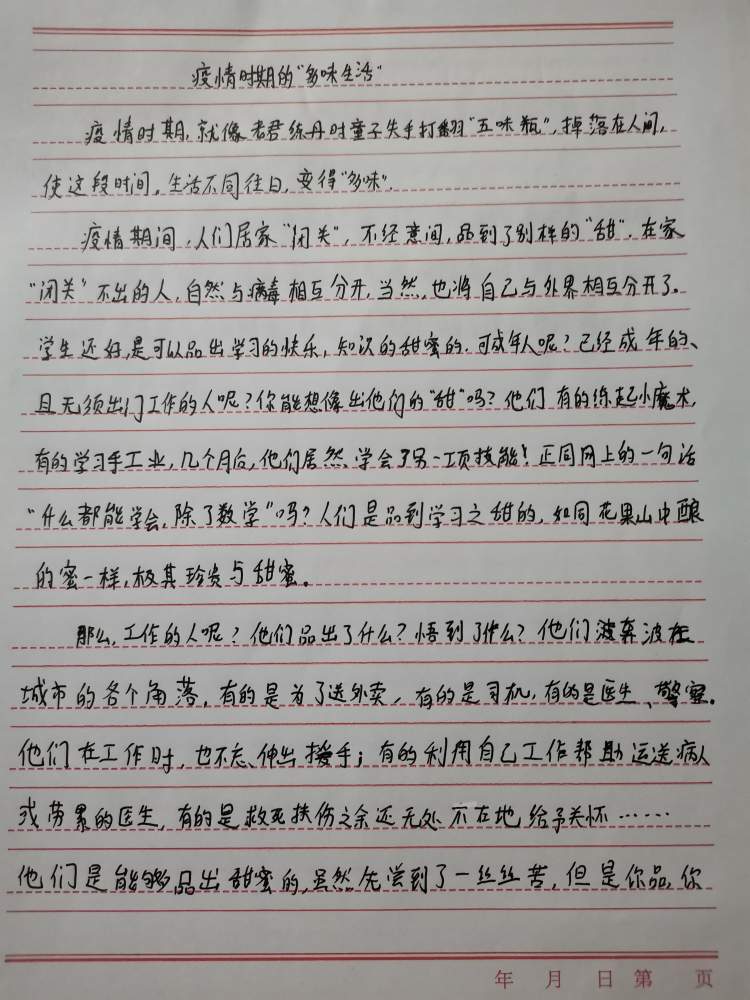 疫情时期的“多味生活”
疫情时期,就像老君练丹时童子失手打翻“五味瓶”,掉落在人间,
使这段时间,生活不同往日,变得“多味”.
疫情期间,人们居家“闭关”,不经意间,品到了别样的“甜”.在家
“闭关”不出的人,自然与病毒相互分开,当然,也将自己与外界相互分开了。
学生还好,是可以品出学习的快乐,知识的甜蜜的.可成年人呢?已经成年的、
且无须出门工作的人呢?你能想像出他们的“甜”吗?他们有的练起小魔术,
有的学习手工业,几个月后,他们居然学会了另一项技能!正同网上的一句话
“什么都能学会,除了数学”吗?人们是品到学习之甜的,如同花果山中酿
的蜜一样,极其珍贵与甜蜜。
那么,工作的人呢?他们品出了什么?悟到了什么?他们奔波在
城市的各个角落,有的是为了送外卖,有的是司机,有的是医生、警察.
他们在工作时,也不忘伸出援手;有的利用自己工作帮助运送病人
或劳累的医生,有的是救死扶伤之余还无处不在地给予关怀……
他们是能够品出甜蜜的,虽然先尝到了一丝丝苦,但是你品,你
年 月 日 第 页